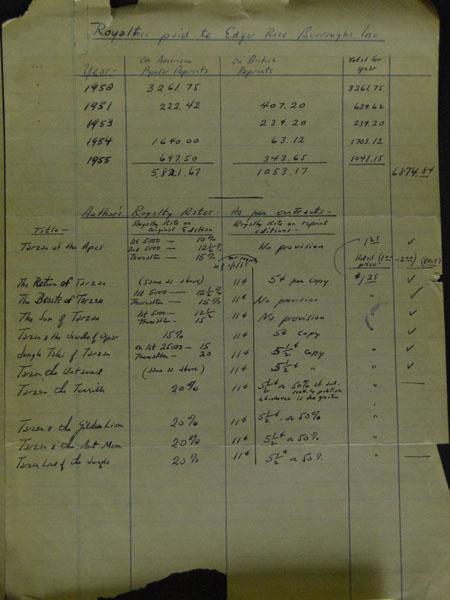 Royalties paid to Edgar Rice Burroughs, Inc
Year - On American Popular Reprints On British Reprints Total for year
1950 3261.75 3261.75
1951 222.42 407.20 629.62
1953 239.20 239.20
1954 1640.00 63.12 1703.12
1955 697.50 343.65 1041.15
5,821.67 1053.17 6874.84
Author's Royalty Rates - As per contracts -
Title - Royalty Rate on original Edition Royalty Rate on reprint editions -
Tarzan of the Apes 1st 5000 — 10% No provision 1.25 ✓
2nd 5000 — 12½%
Thereafter — 15%
The Return of Tarzan (Same as above) 11¢ 5¢ per copy $1.25 ✓
The Beasts of Tarzan 1st 5000 — 12½% 11¢ No provision " ✓
Thereafter — 15%
The Son of Tarzan 1st 5000 — 12½ 11¢ No provision ✓
Thereafter — 15
Tarzan & the Jewels of Opar 15% 11¢ 5¢ copy " ✓
Jungle Tales of Tarzan on 1st 25000 - 15 11¢ 5½¢ copy " ✓
Thereafter — 20
Tarzan the Untamed (Same as above) 11¢ 5½¢ " " ✓
Tarzan the Terrible 20% 11¢ 5½¢ or 50% " —
Tarzan & the Golden Lion 20% 11¢ 5½¢ or 50% "
Tarzan & the Ant Men 20% 11¢ 5½¢ or 50% "
Tarzan Lord of the Jungle 20% 11¢ 5½¢ or 50% " —